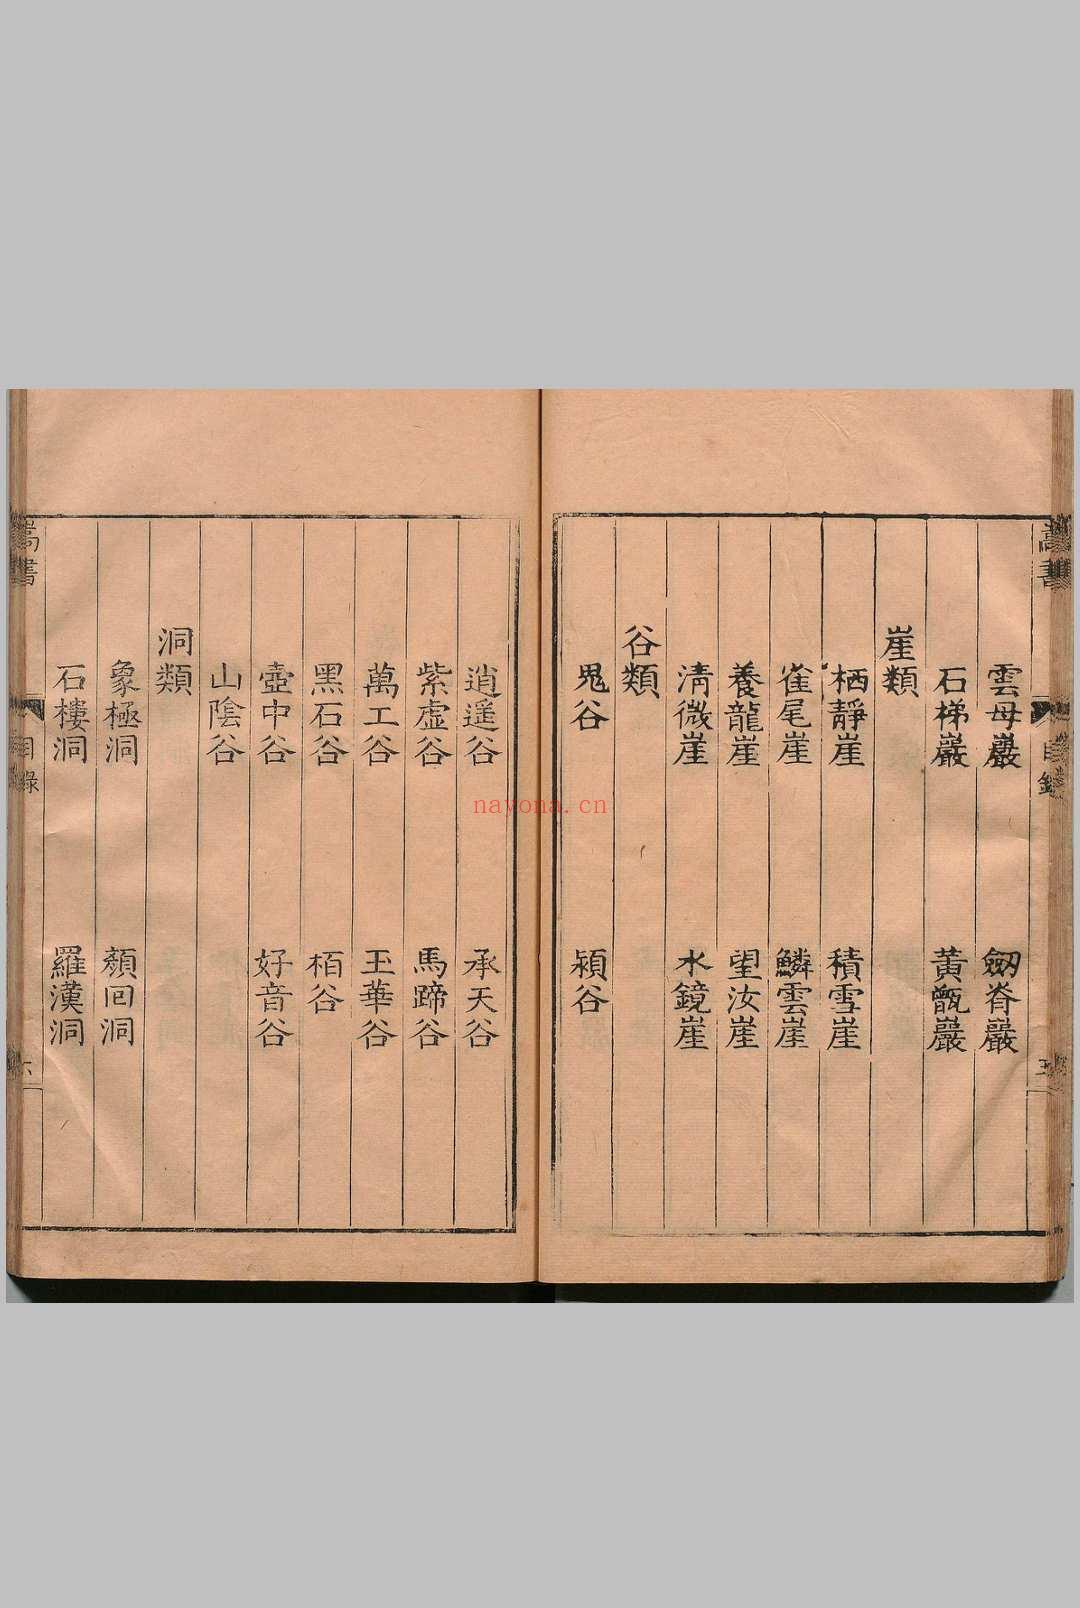 嵩書 目錄 五
雲母巖 劒脊巖
石梯巖 黃甑巖
崖類
栖靜崖 積雪崖
雀尾崖 鱗雲崖
養龍崖 望汝崖
清微崖 水鏡崖
谷類
鬼谷 潁谷
逍遥谷 承天谷
紫虛谷 馬蹄谷
萬工谷 玉華谷
黑石谷 栢谷
壺中谷 好音谷
山陰谷
洞類
象極洞 顏回洞
石樓洞 羅漢洞
嵩書 目錄 六
nayona.cn